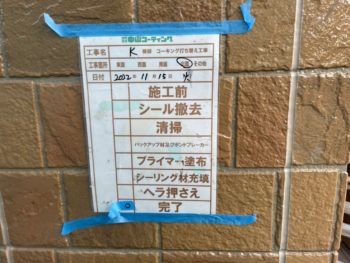 中山コーティング
工事名 K 様邸 コーキング打ち替え工事
工事箇所 東面 西面 南面 北面 その他
日付 2022年 11月 15日 火
施工前
シール撤去
清掃
バックアップ材及びボンドブレーカー
プライマー塗布
シーリング材充填
ヘラ押さえ
完了